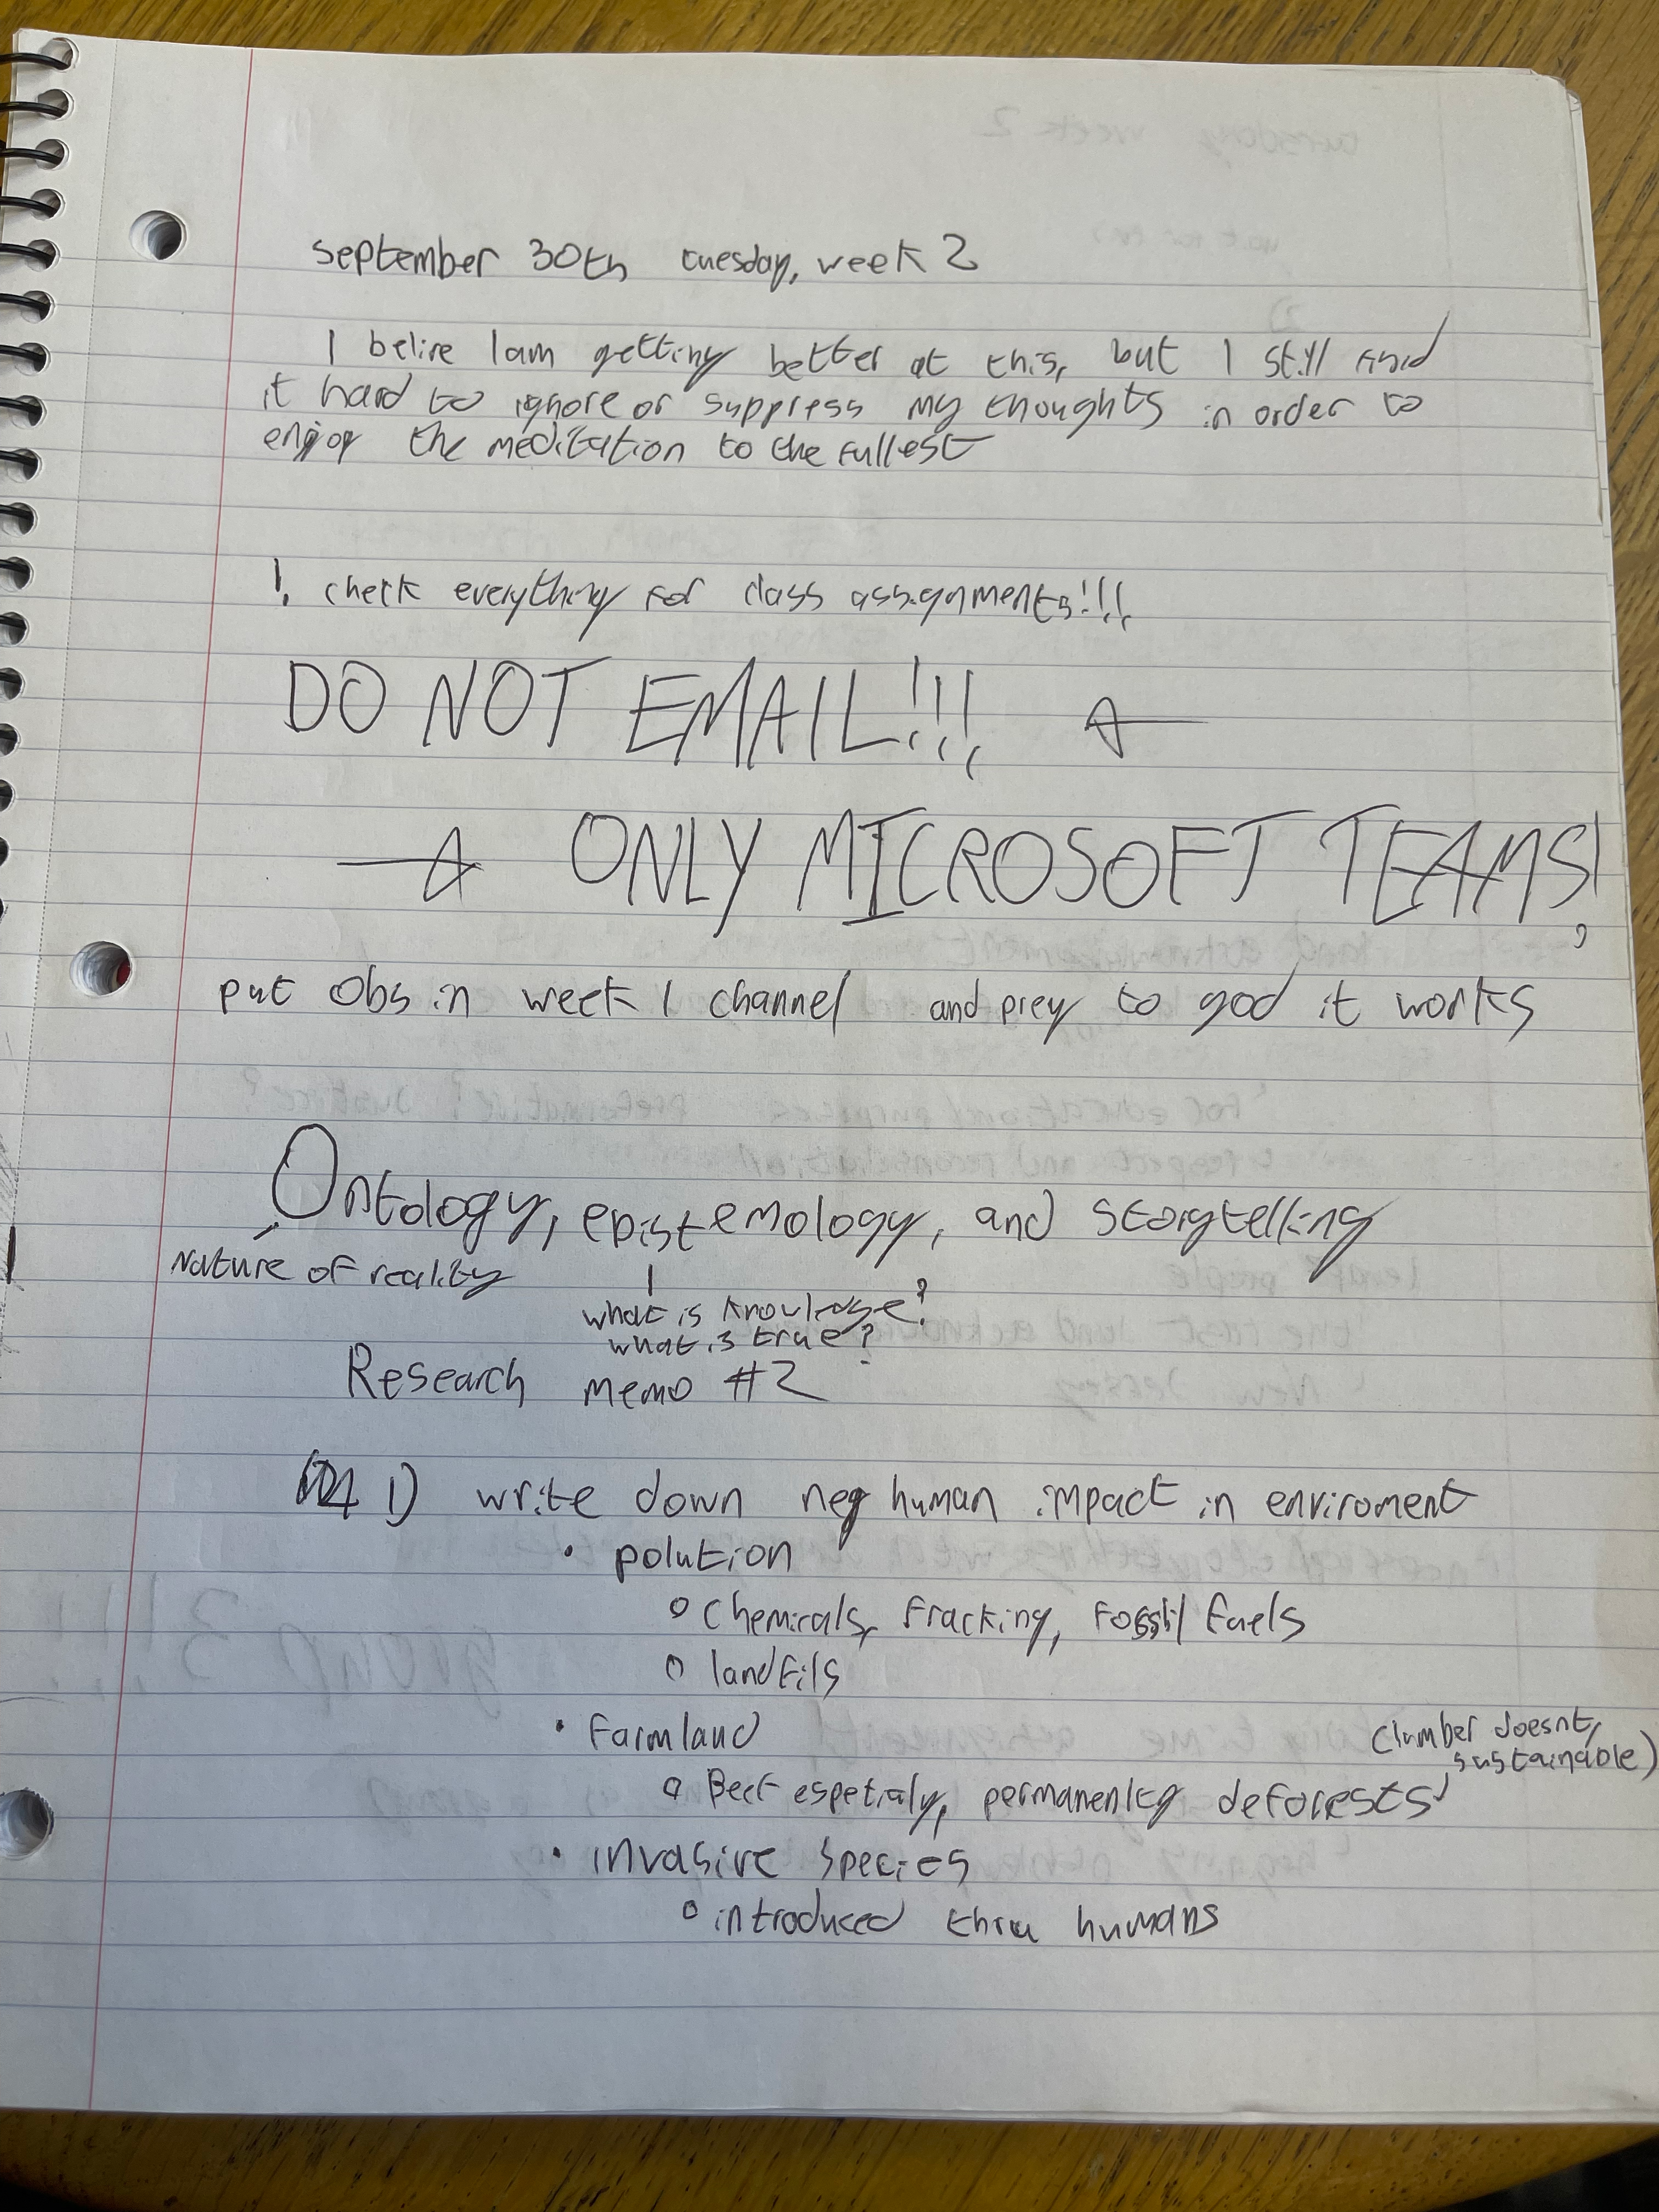 september 30th tuesday, week 2
I belive I am getting better at this, but I still find
it hard to ignore or suppress my thoughts in order to
enjoy the meditation to the fullest
! check everything for class assignments!!!
DO NOT EMAIL!!!
ONLY MICROSOFT TEAMS!
put Obs in week 1 channel and prey to god it works
Ontology, epistemology, and storytelling
Nature of reality
what is knowledge?
what is true?
Research memo #2
1) write down neg human impact in enviroment
• polution
o Chemicals, Fracking, Fossil fuels
o landfils
• Farmland
(lumber doesnt,
sustainable)
o Beef espetialy, permanently deforests
• invasive species
o introduced thru humans